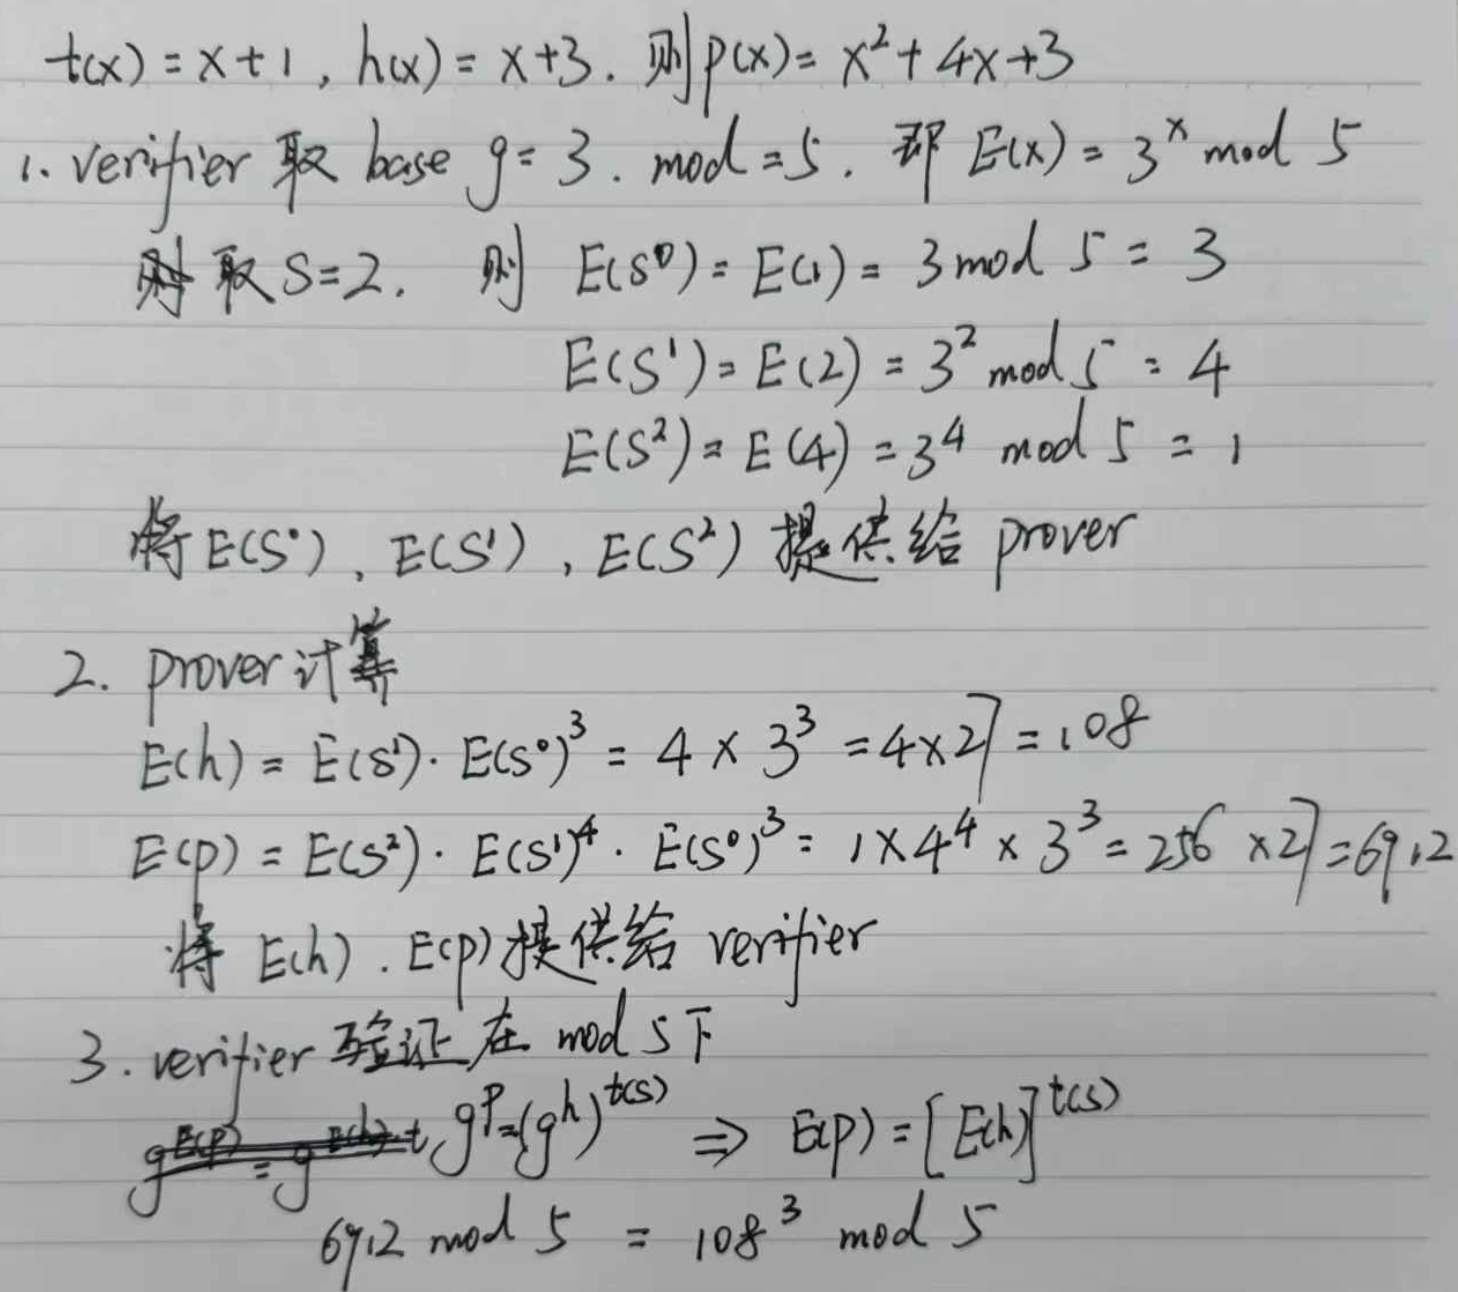 t(x) = x+1 , h(x) = x+3 . 则 p(x) = x² + 4x+3
1. verifier 取 base g = 3 . mod = 5 . 即 E(x) = 3ˣ mod 5
取 S=2. 则 E(s⁰) = E(1) = 3 mod 5 = 3
E(S¹) = E(2) = 3² mod 5 = 4
E(S²) = E(4) = 3⁴ mod 5 = 1
将 E(S⁰) , E(S¹) , E(S²) 提供给 prover
2. prover 计算
E(h) = E(s¹) · E(s⁰)³ = 4 × 3³ = 4×27 = 108
E(p) = E(s²) · E(s¹)⁴ · E(s⁰)³ = 1×4⁴ × 3³ = 256 ×27 = 6912
将 E(h) . E(p) 提供给 verifier
3. verifier 验证 在 mod 5 下
gᵖ = (gʰ)ᵗ⁽ˢ⁾ ⇒ E(p) = [E(h)]ᵗ⁽ˢ⁾
6912 mod 5 = 108³ mod 5